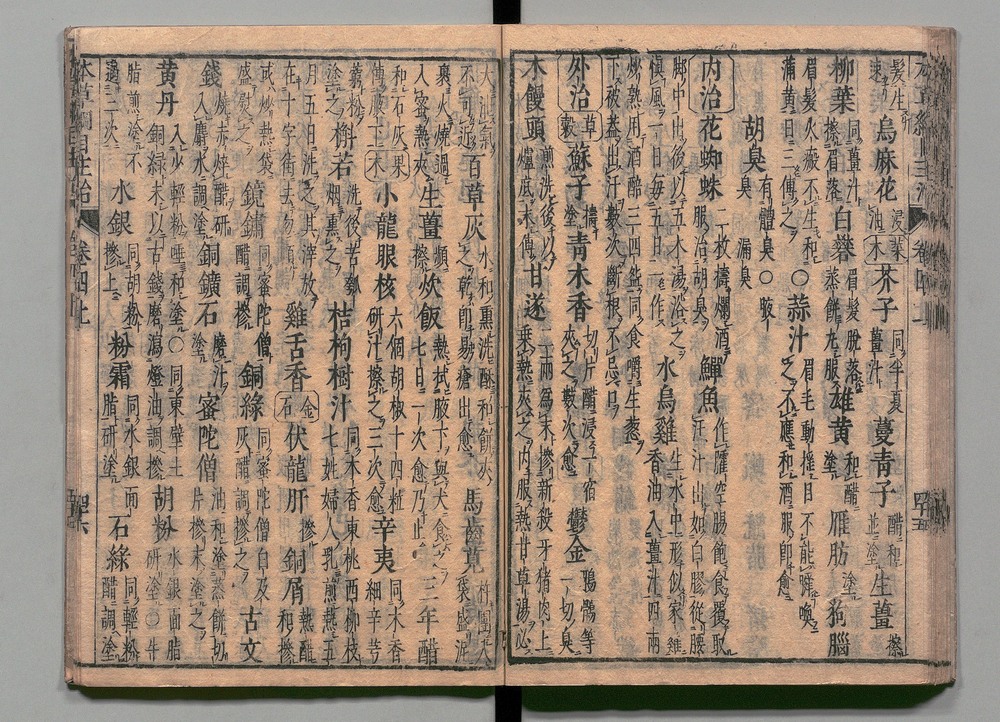 髮生速 烏麻花 浸油 葉木 芥子 同半夏薑汁 蔓青子 醋和並塗 生薑 擦
柳葉 同薑汁擦眉落 白蘞 眉髮脫落蒸餅九服 雄黃 和醋塗 雁肪 塗 狗腦
眉髮火瘢不生和蒲黃日三傅之 ○蒜汁 眉毛動搖目不能喚之不應和酒服即愈
胡臭 有體臭○腋臭漏臭
內治 花蜘蛛 二枚擣爛酒服治胡臭 鱓魚 作臛空腸飽食覆取汗汁出如白膠從腰
脚中出後以五木湯浴之慎風一日每五日一作 水烏雞 生水中形似家雞香油入薑汁四兩
炒熟用酒醅三四盌同食嚼生葱下被蓋出汗數次斷根不忌口
外治 草穀 蘇子 擣塗 青木香 切片醋浸一宿夾之數次愈 鬱金 鴉鶻等一切臭
木饅頭 煎洗後以爐底末傅 甘遂 二兩為末摻新殺牙豬肉上乘熱夾之內服熱甘草湯必
大汕氣不可近 百草灰 水和熏洗酥和餅夾之乾即易瘡出愈 馬齒莧 杵團入袋盛泥
裹火燒過入蜜熱夾 生薑 頻擦 炊飯 熱拭腋下與犬食之七日一次愈乃止 三年醋
和石灰傅腋下 果木 小龍眼核 六個胡椒十四粒研汁擦之三次愈 辛夷 同木香細辛芎
藭粉塗之 槲若 洗後傅苦瓠烟熏之 桔枸樹汁 同木香東桃西柳枝七姓婦人乳煎熱五
月五日洗之其滓放在十字街去勿顧 雞舌香 金石 伏龍肝 摻 銅屑 熱醋和摻
或炒熱袋盛熨之 鏡鏽 同蜜陀僧醋調摻 銅綠 同密陀僧白及灰醋調摻之 古文
錢 燒赤焠醋研入麝水調塗 銅鑛石 磨汁塗 密陀僧 油和塗蒸餅切片摻末塗之
黃丹 入少輕粉唾和塗○同東壁土銅綠末以古錢磨瀉燈油調摻 胡粉 水銀面脂研塗○牛
脂煎塗不過三次 水銀 同胡粉摻上 粉霜 同水銀面脂研塗 石綠 同輕粉醋調塗
本草綱目主治 卷四七 四六